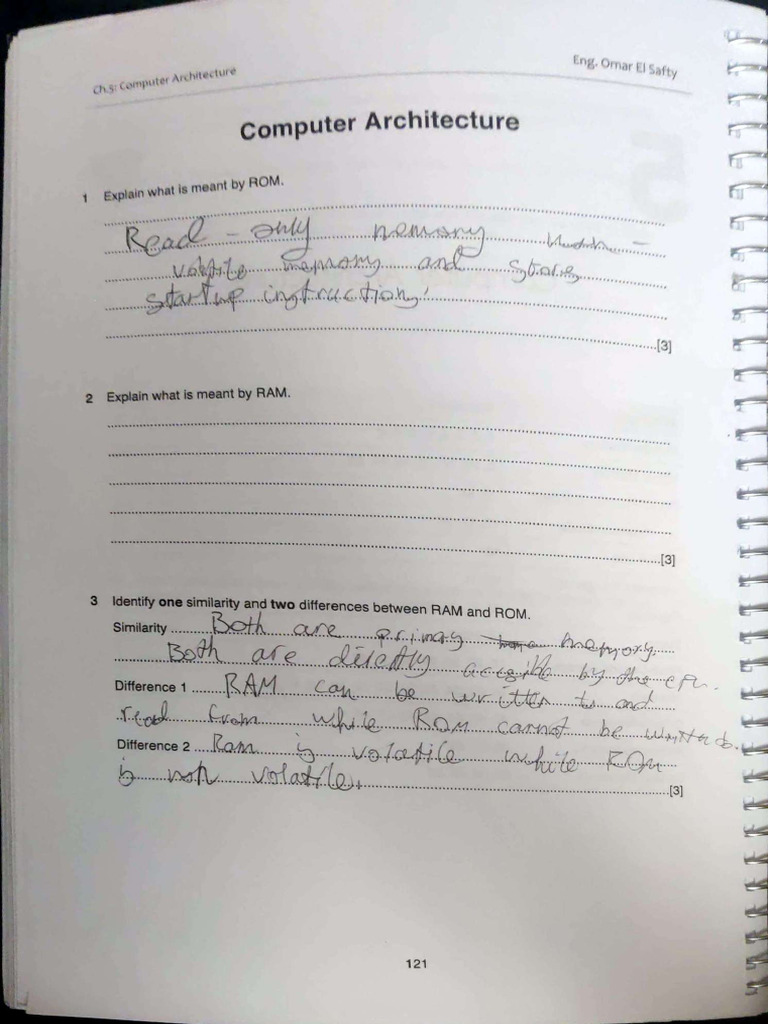 Ch.5: Computer Architecture
Eng. Omar El Safty
Computer Architecture
1 Explain what is meant by ROM.
Read - only memory
volatile memory and stores
startup instructions
[3]
2 Explain what is meant by RAM.
[3]
3 Identify one similarity and two differences between RAM and ROM.
Similarity Both are primary memory.
Both are directly by the CPU.
Difference 1 RAM can be written to and
read from while ROM cannot be
Difference 2 Ram is volatile while ROM
is not volatile.
[3]
121